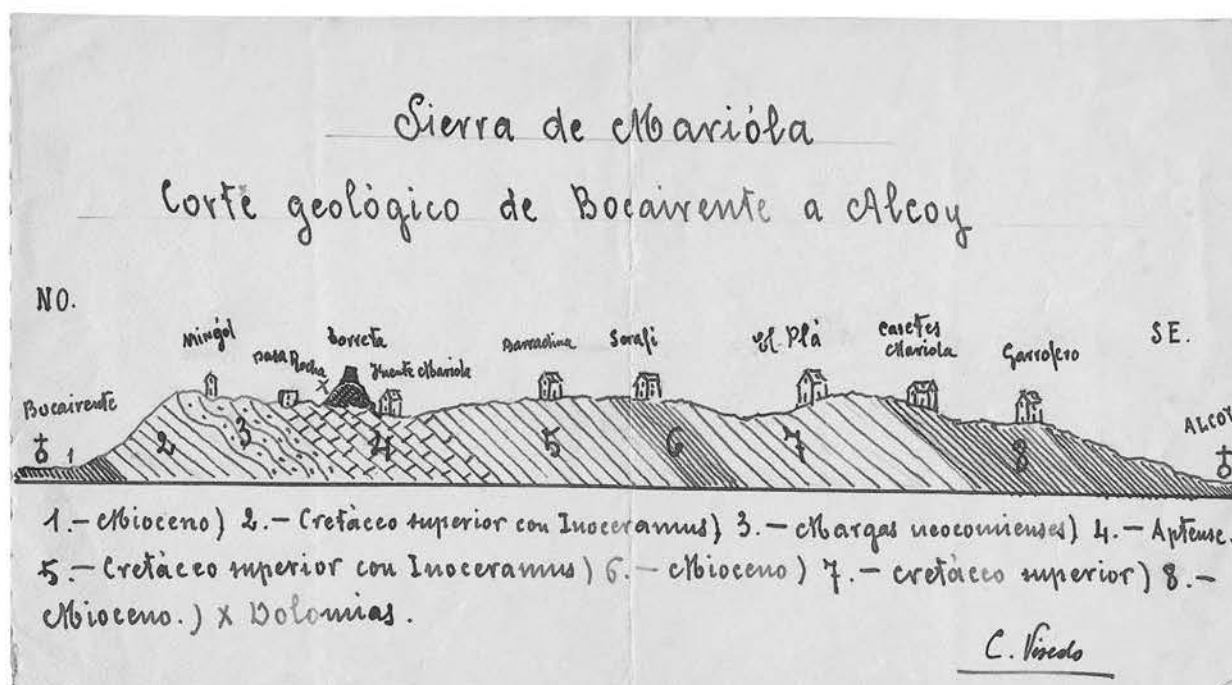 Sierra de Marióla
Corte geológico de Bocairente a Alcoy
NO.
SE.
Mingol
Casa Rocha
X
Borreta
Fuente Mariola
Barradina
Serafi
El Plà
Casetes
Mariola
Garrofero
Bocairente
ALCOY
1 2 3 4 5 6 7 8
1.- Mioceno) 2.- Cretáceo superior con Inoceramus) 3.- Margas neocomienses) 4.- Aptense.
5.- Cretáceo superior con Inoceramus) 6.- Mioceno) 7.- cretáceo superior) 8.-
Mioceno.) X Dolomias.
C. Visedo